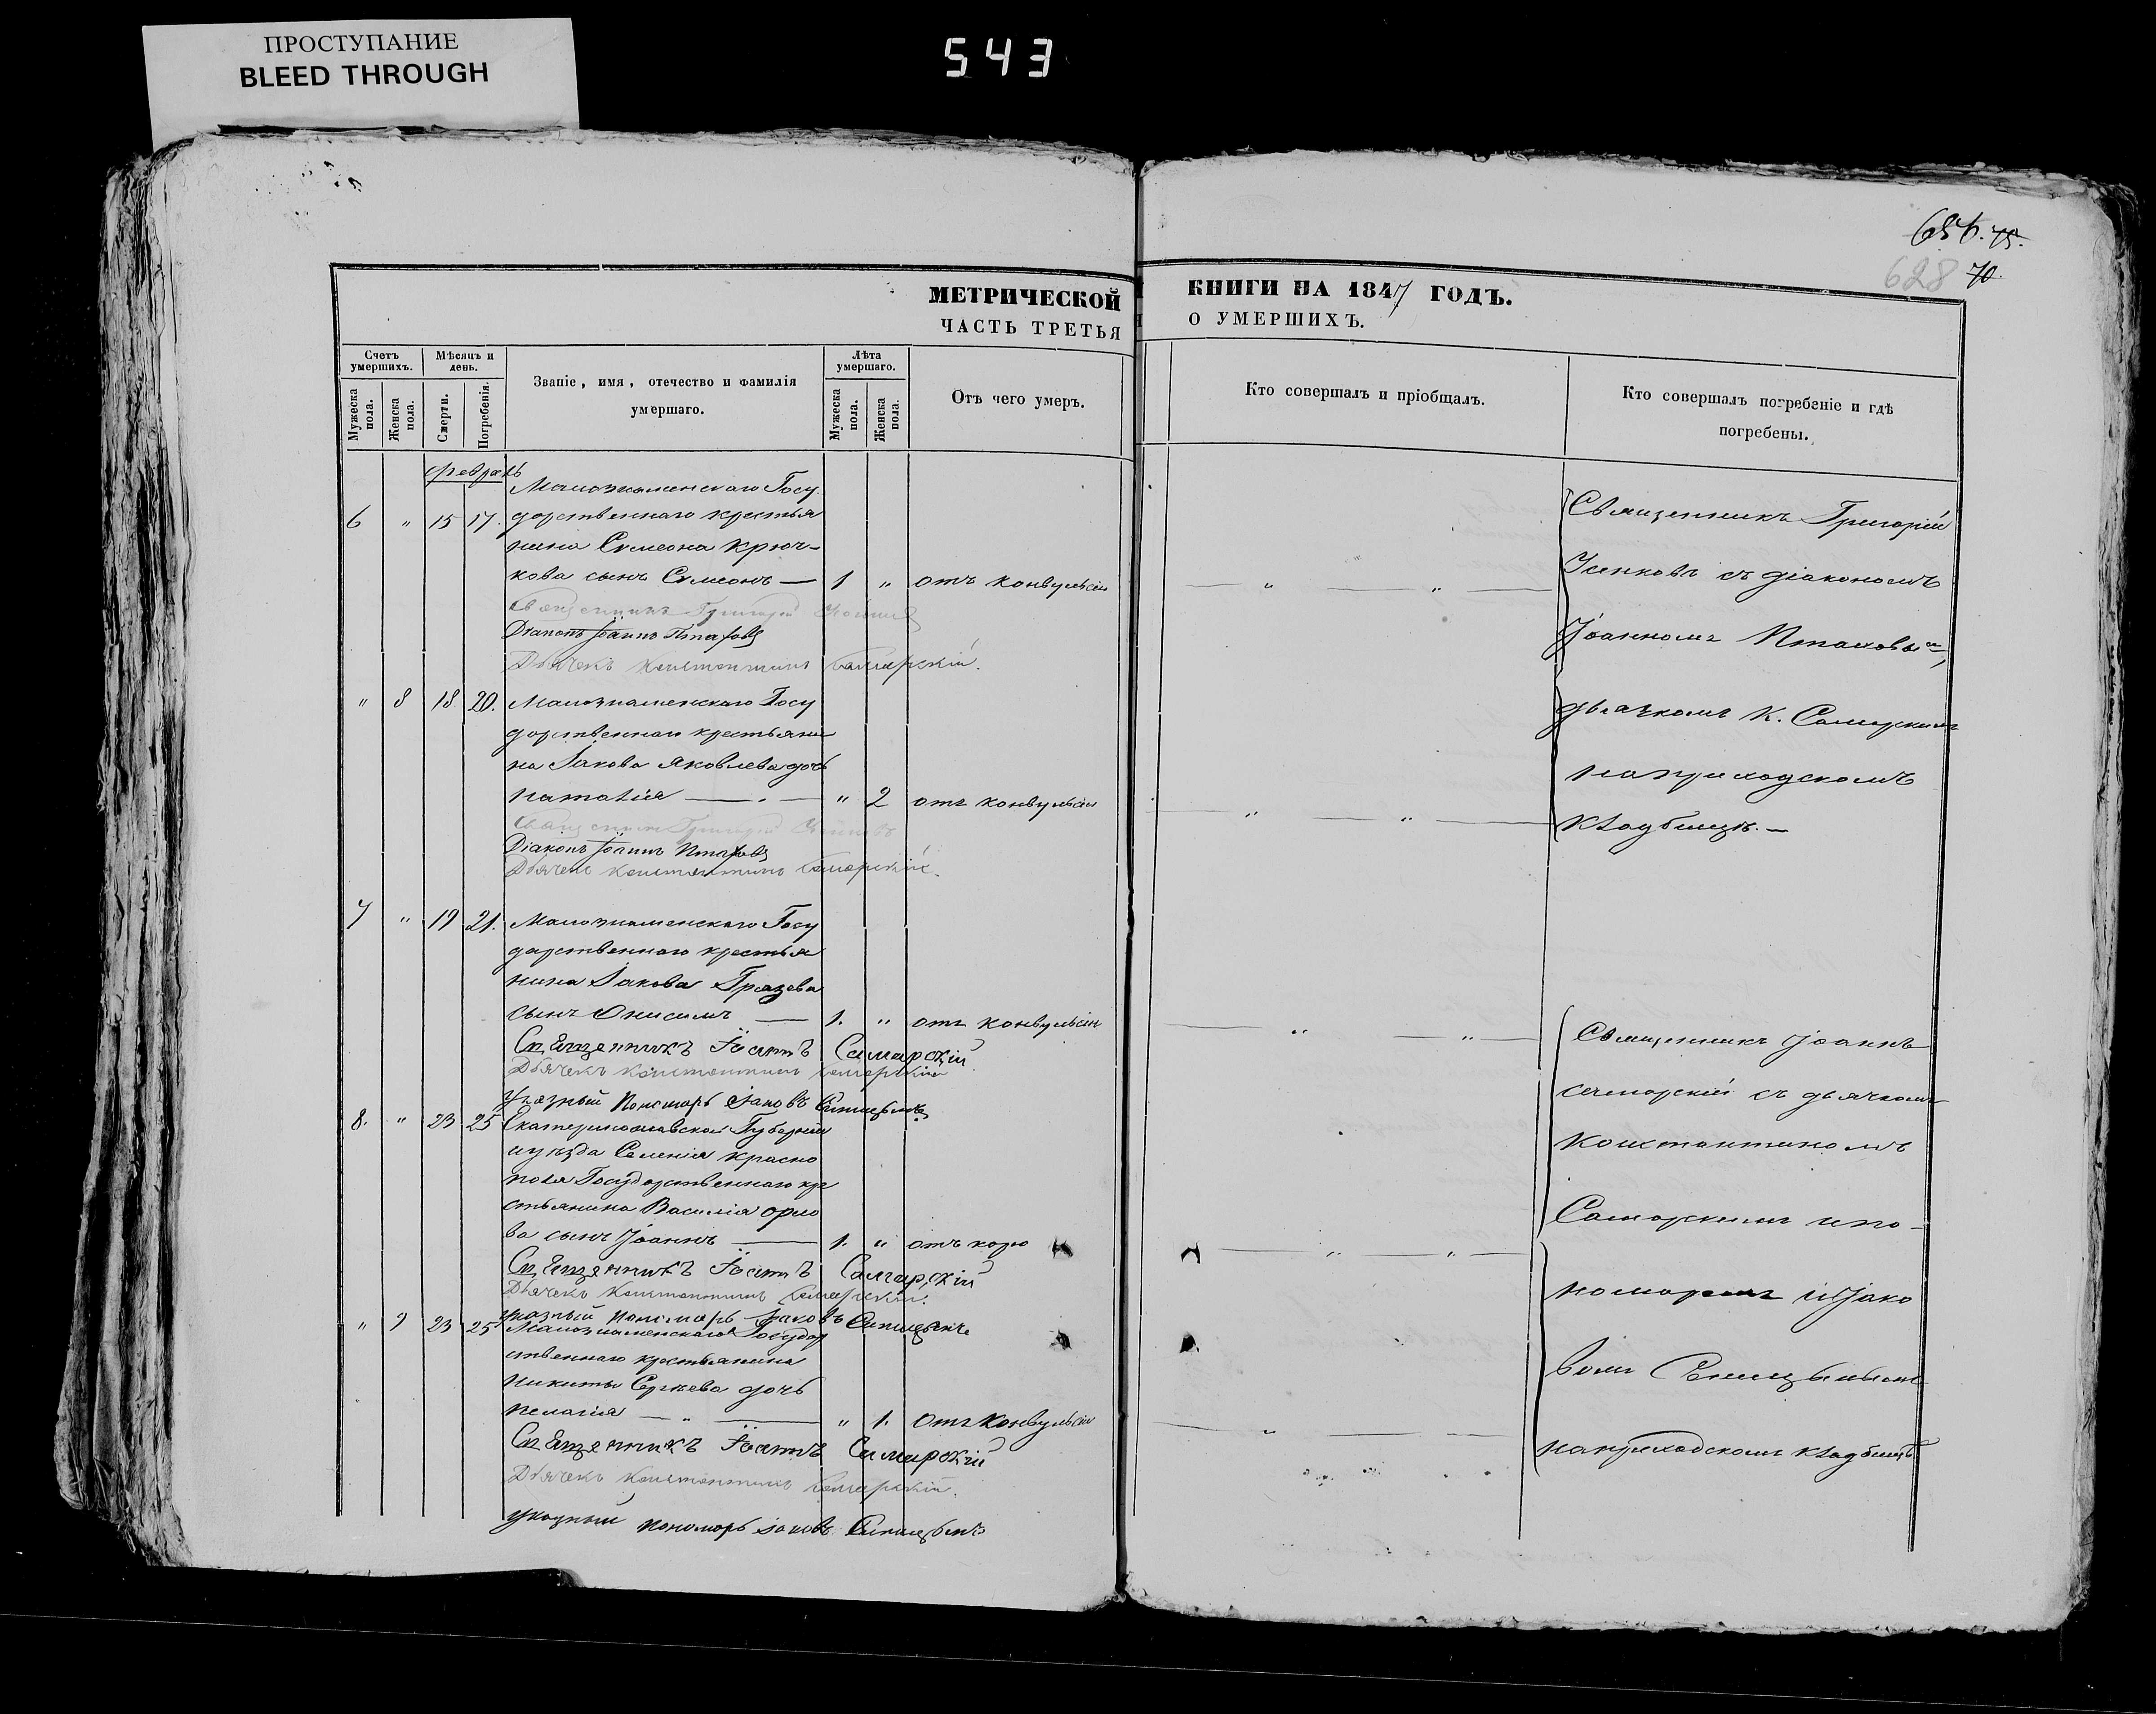 ПРОСТУПАНИЕ
BLEED THROUGH
543
656. 75.
628 70.
МЕТРИЧЕСКОЙ КНИГИ НА 1847 ГОДЪ.
ЧАСТЬ ТРЕТЬЯ О УМЕРШИХЪ.
Счетъ умершихъ.
Мужеска пола.
Женска пола.
Мѣсяцъ и день.
Смерти.
Погребенія.
Званіе, имя, отечество и фамилія умершаго.
Лѣта умершаго.
Мужеска пола.
Женска пола.
Отъ чего умеръ.
Кто совершалъ и пріобщалъ.
Кто совершалъ погребеніе и гдѣ погребены.
февраль
Малознаменскаго Госу
6 " 15 17. дарственнаго крестья
нина Симеона Крюч-
кова сынъ Симеонъ — 1 " отъ конвульсіи — " — " —
Священникъ Григорій
Діаконъ Іоаннъ Птаховъ
Дьячекъ Константинъ Самарскій.
Священникъ Григорій
съ діакономъ
Іоанномъ Птаховымъ,
дьячкомъ К. Самарскимъ
на приходскомъ
кладбищѣ. —
" 8 18 20. Малознаменскаго Госу
дарственнаго крестьяни
на Іакова Яковлева дочь
Наталія — . — " 2 отъ конвульсіи — " — " —
Священникъ Григорій
Діаконъ Іоаннъ Птаховъ
Дьячекъ Константинъ Самарскій.
7 " 19 21. Малознаменскаго Госу
дарственнаго крестья
нина Іакова Грязева
сынъ Онисимъ — 1. " отъ конвульсіи — " — " —
Священникъ Іоаннъ Самарскій
Дьячекъ Константинъ Самарскій
указный пономарь Іаковъ Синицынъ
8. " 23 25 Екатеринославской Губерніи
уѣзда Селенія Красно
полья Государственнаго кре
стьянина Василія Орло
ва сынъ Іоаннъ — 1. " отъ кори — " — " —
Священникъ Іоаннъ Самарскій
Дьячекъ Константинъ Самарскій.
указный пономарь Іаковъ Синицынъ
" 9 23 25 Малознаменскаго Государ
ственнаго крестьянина
Никиты Сергѣева дочь
Пелагія — " — " 1. отъ конвульсіи — " —
Священникъ Іоаннъ Самарскій
Дьячекъ Константинъ Самарскій.
указный пономарь Іаковъ Синицынъ
Священникъ Іоаннъ
Самарскій съ дьячкомъ
Константиномъ
Самарскимъ и по-
номаремъ Іако
вомъ Синицынымъ
на приходскомъ кладбищѣ